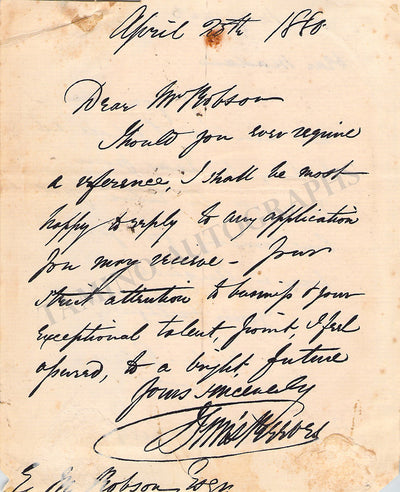 April 20th 1880.
Dear Mr Robson
Should you ever require
a reference, I shall be most
happy to reply to any application
you may receive - Your
strict attention to business & your
exceptional talent, point I feel
assured, to a bright future
Yours sincerely
Sims Reeves
E. M. Robson Esqr
TAMINO AUTOGRAPHS